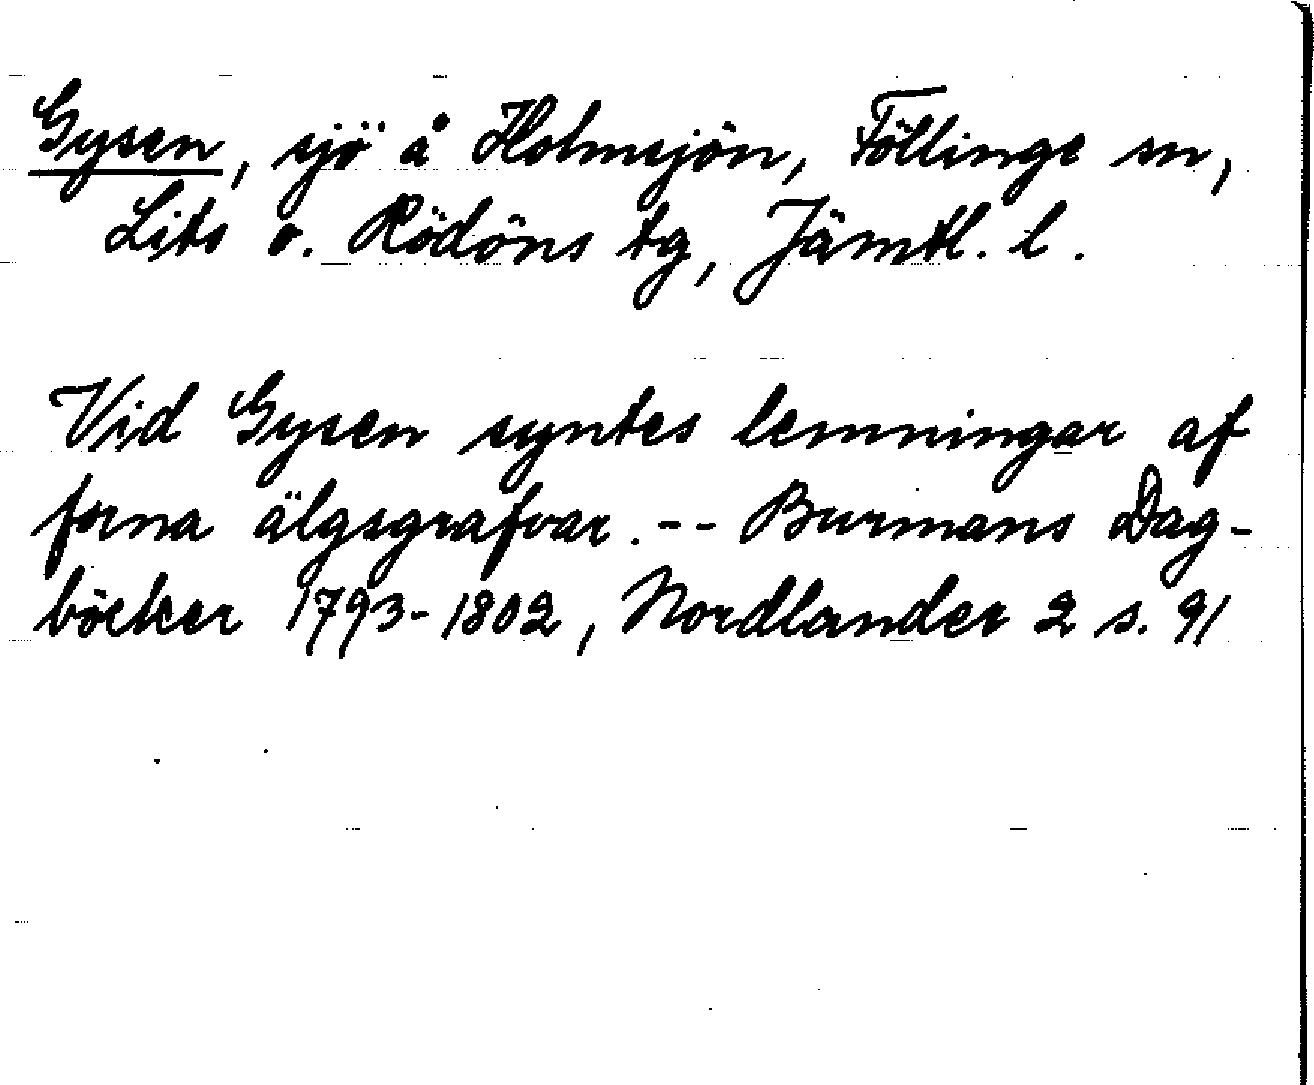 Gysen, sjö å Holmsjön, Föllinge sn,
Lits o. Rödöns tg, Jämtl. l.
Vid Gysen syntes lemningar af
forna älgsgrafvar. -- Burmans Dag-
böcker 1793-1802, Nordlander 2 s. 91